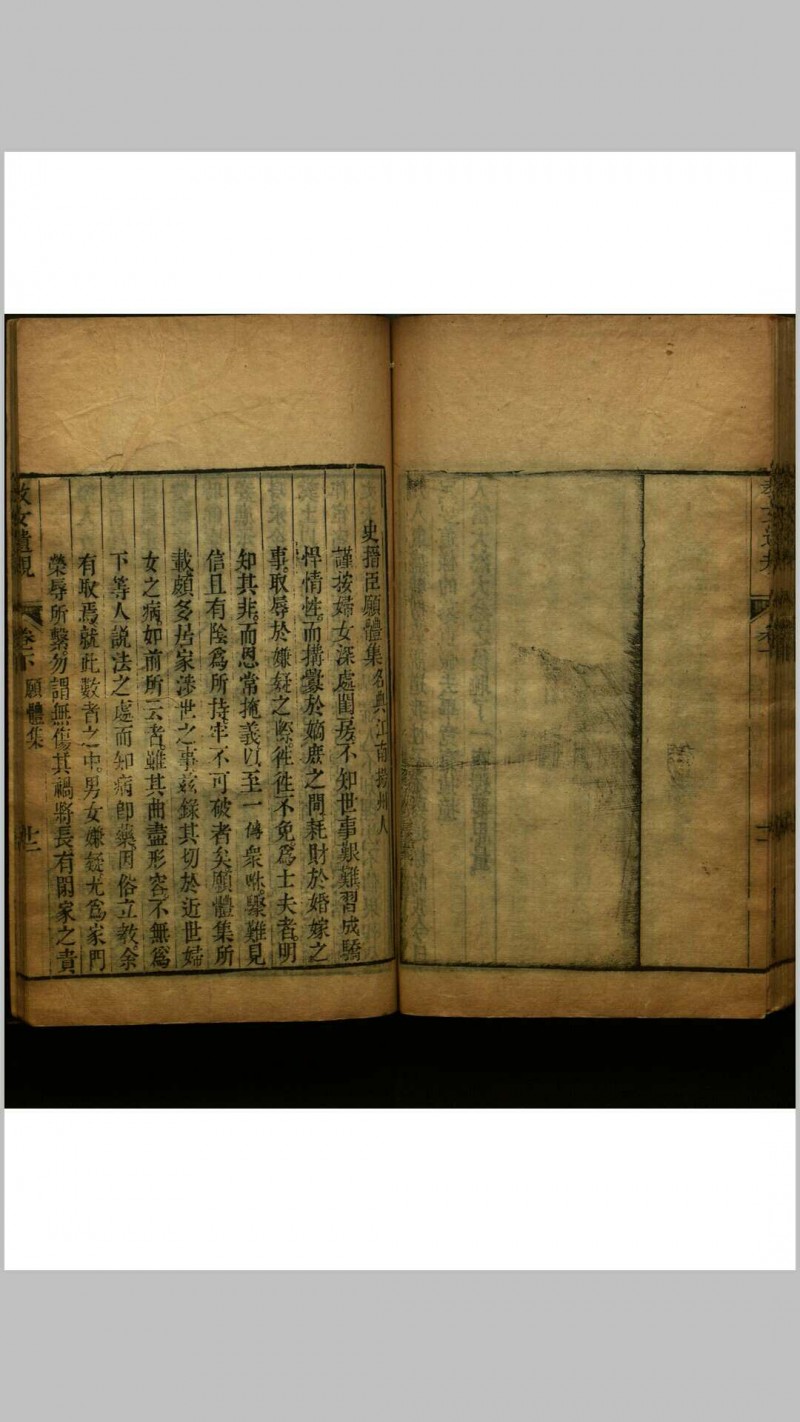 史搢臣願體集名典江南揚州人
謹按婦女深處閨房不知世事艱難習成驕
悍情性。而搆釁於嫡庶之間耗財於婚嫁之
事。取辱於嫌疑之際徃徃不免。爲士夫者。明
知其非。而恩常掩義以至一傳衆咻。驟難見
信且有陰爲所持牢不可破者矣願體集所
載頗多居家涉世之事玆錄其切於近世婦
女之病。如前所云者。雖其曲盡形容不無爲
下等人說法之處而知病卽藥因俗立教余
有取焉。就此數者之中。男女嫌疑尤爲家門
榮辱所繫。勿謂無傷其禍將長有閑家之責
教女遺規 卷下 願體集